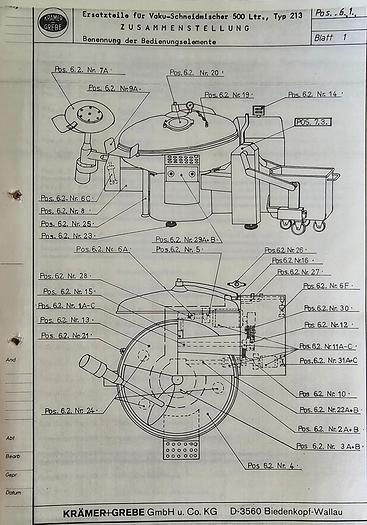 KRÄMER
+
GREBE
Ersatzteile für Vaku-Schneidmischer 500 Ltr., Typ 213
ZUSAMMENSTELLUNG
Benennung der Bedienungselemente
Pos. 6.1.
Blatt 1
Pos. 6.2. Nr. 7A
Pos. 6.2. Nr. 20
Pos. 6.2. Nr. 9A
Pos. 6.2. Nr. 19
Pos. 6.2. Nr. 14
Pos. 6.2. Nr. 6C
Pos. 6.2. Nr. 8
Pos. 6.2. Nr. 25
Pos. 6.2. Nr. 23
Pos. 6.2. Nr. 29A+B
Pos. 6.2. Nr. 6A
Pos. 6.2. Nr. 5
Pos. 6.2. Nr. 26
Pos. 6.2. Nr. 16
Pos. 6.2. Nr. 27
Pos. 6.2. Nr. 28
Pos. 6.2. Nr. 6F
Pos. 6.2. Nr. 15
Pos. 6.2. Nr. 1A-C
Pos. 6.2. Nr. 30
Pos. 6.2. Nr. 13
Pos. 6.2. Nr. 12
Pos. 6.2. Nr. 21
Pos. 6.2. Nr. 11A-C
Pos. 6.2. Nr. 31A+C
Pos. 6.2. Nr. 10
Pos. 6.2. Nr. 24
Pos. 6.2. Nr. 22A+B
Pos. 6.2. Nr. 2A+B
Pos. 6.2. Nr. 3A+B
Pos. 6.2. Nr. 4
And
Abt
Bearb
Gepr
Datum
KRÄMER+GREBE GmbH u. Co. KG D-3560 Biedenkopf-Wallau